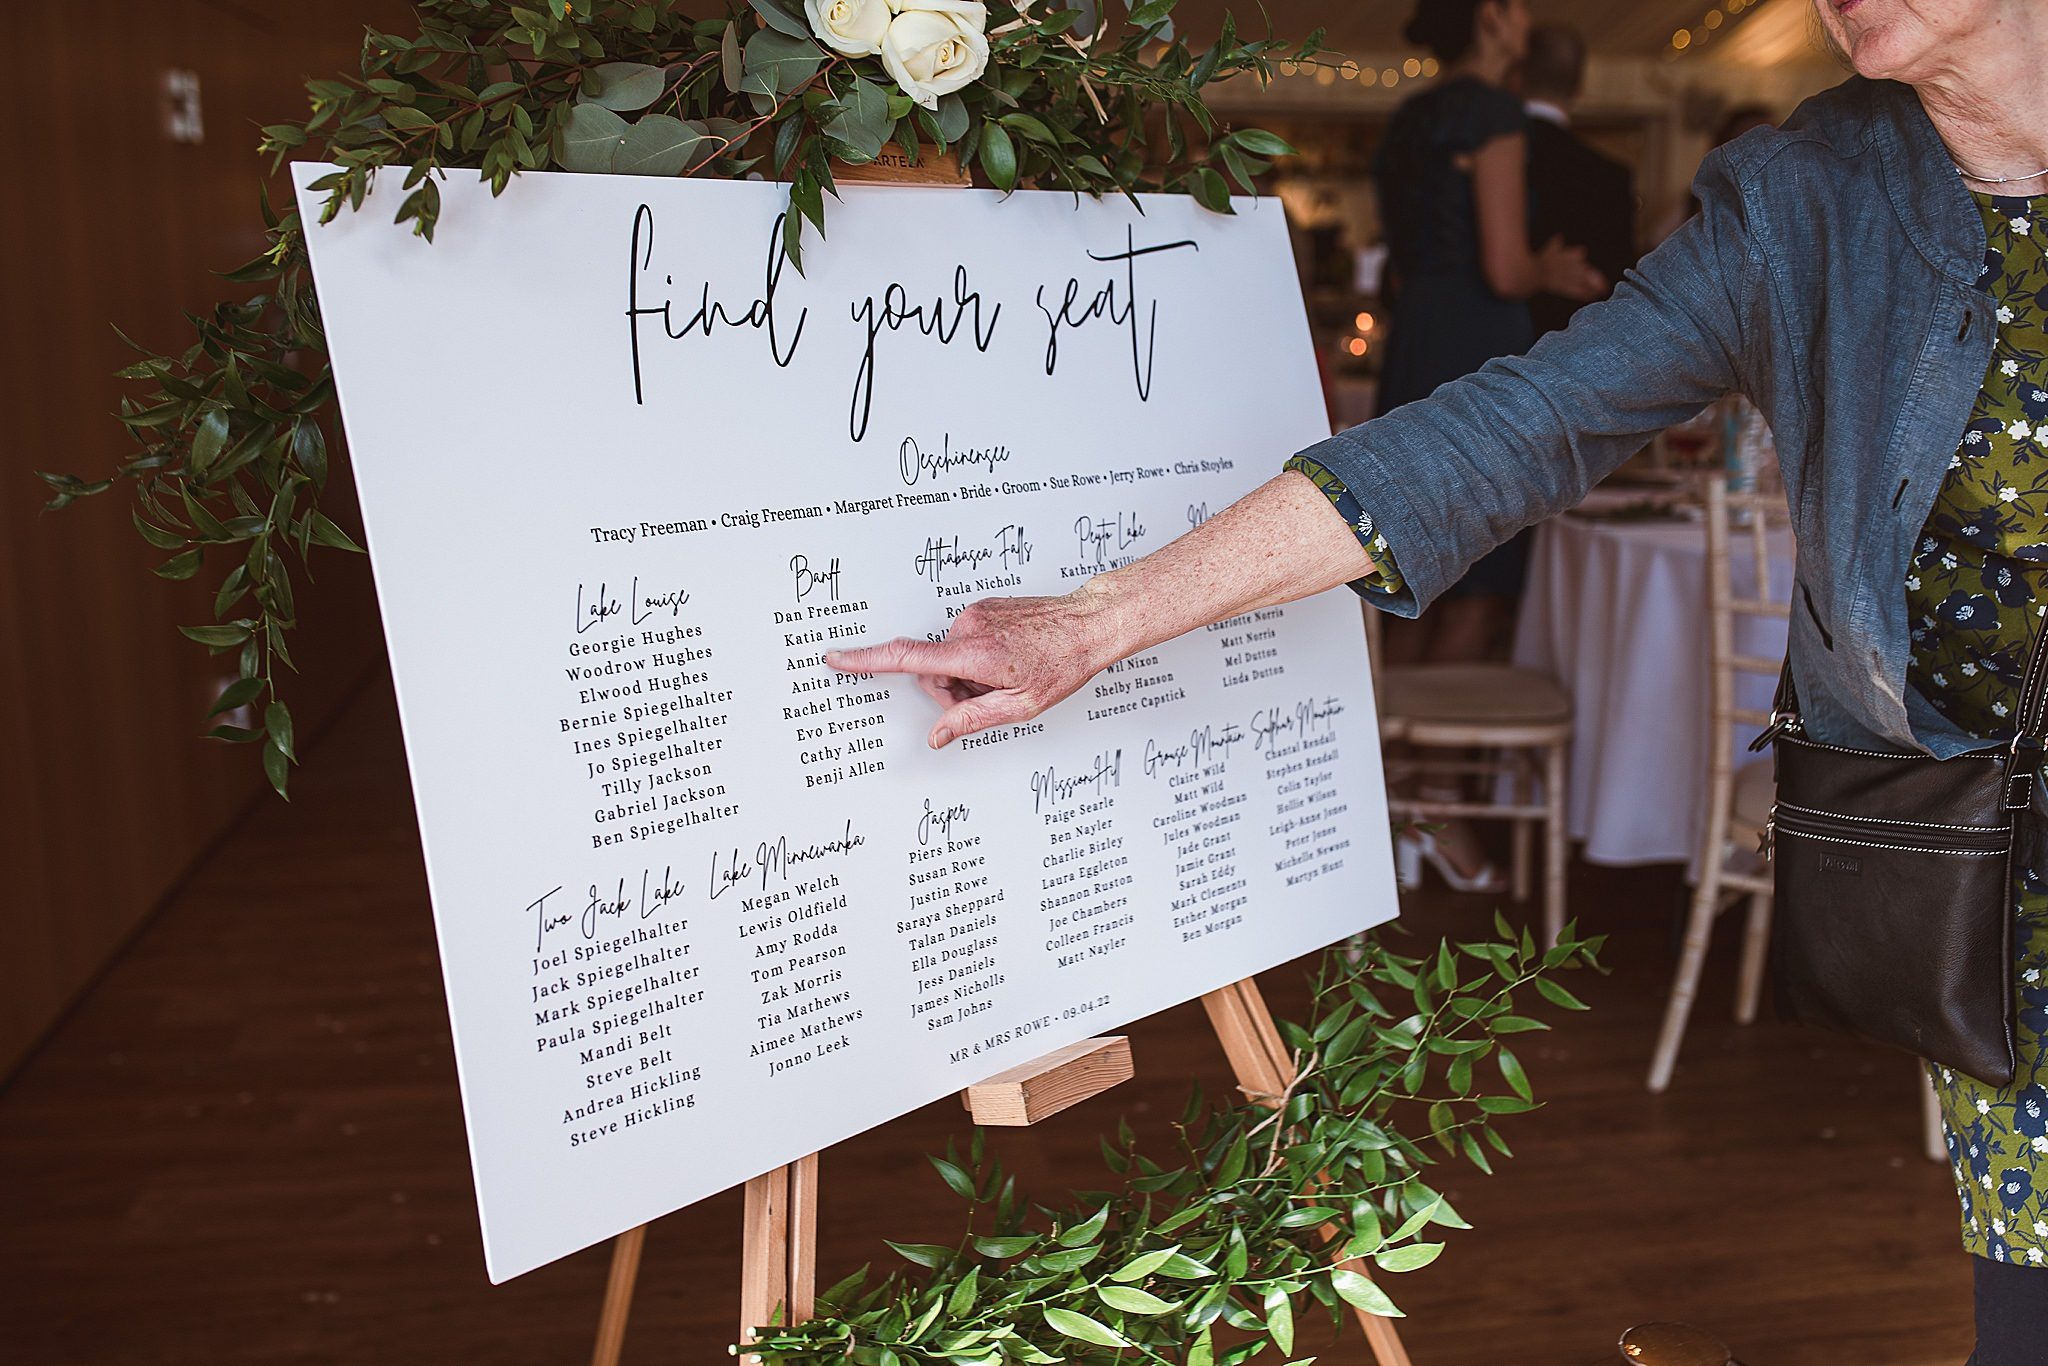 ARTEZA
find your seat
Oeschinensee
Tracy Freeman • Craig Freeman • Margaret Freeman • Bride • Groom • Sue Rowe • Jerry Rowe • Chris Stoyles
Lake Louise
Georgie Hughes
Woodrow Hughes
Elwood Hughes
Bernie Spiegelhalter
Ines Spiegelhalter
Jo Spiegelhalter
Tilly Jackson
Gabriel Jackson
Ben Spiegelhalter
Banff
Dan Freeman
Katia Hinic
Annie
Anita Pryor
Rachel Thomas
Evo Everson
Cathy Allen
Benji Allen
Athabasca Falls
Paula Nichols
Freddie Price
Peyto Lake
Kathryn
Wil Nixon
Shelby Hanson
Laurence Capstick
Charlotte Norris
Matt Norris
Mel Dutton
Linda Dutton
Two Jack Lake
Joel Spiegelhalter
Jack Spiegelhalter
Mark Spiegelhalter
Paula Spiegelhalter
Mandi Belt
Steve Belt
Andrea Hickling
Steve Hickling
Lake Minnewanka
Megan Welch
Lewis Oldfield
Amy Rodda
Tom Pearson
Zak Morris
Tia Mathews
Aimee Mathews
Jonno Leek
Jasper
Piers Rowe
Susan Rowe
Justin Rowe
Saraya Sheppard
Talan Daniels
Ella Douglass
Jess Daniels
James Nicholls
Sam Johns
Mission Hill
Paige Searle
Ben Nayler
Charlie Bizley
Laura Eggleton
Shannon Ruston
Joe Chambers
Colleen Francis
Matt Nayler
Grouse Mountain
Claire Wild
Matt Wild
Caroline Woodman
Jules Woodman
Jade Grant
Jamie Grant
Sarah Eddy
Mark Clements
Esther Morgan
Ben Morgan
Sulphur Mountain
Chantal Rendall
Stephen Rendall
Colin Taylor
Hollie Wilson
Leigh-Anne Jones
Peter Jones
Michelle Newson
Martyn Hunt
MR & MRS ROWE • 09.04.22